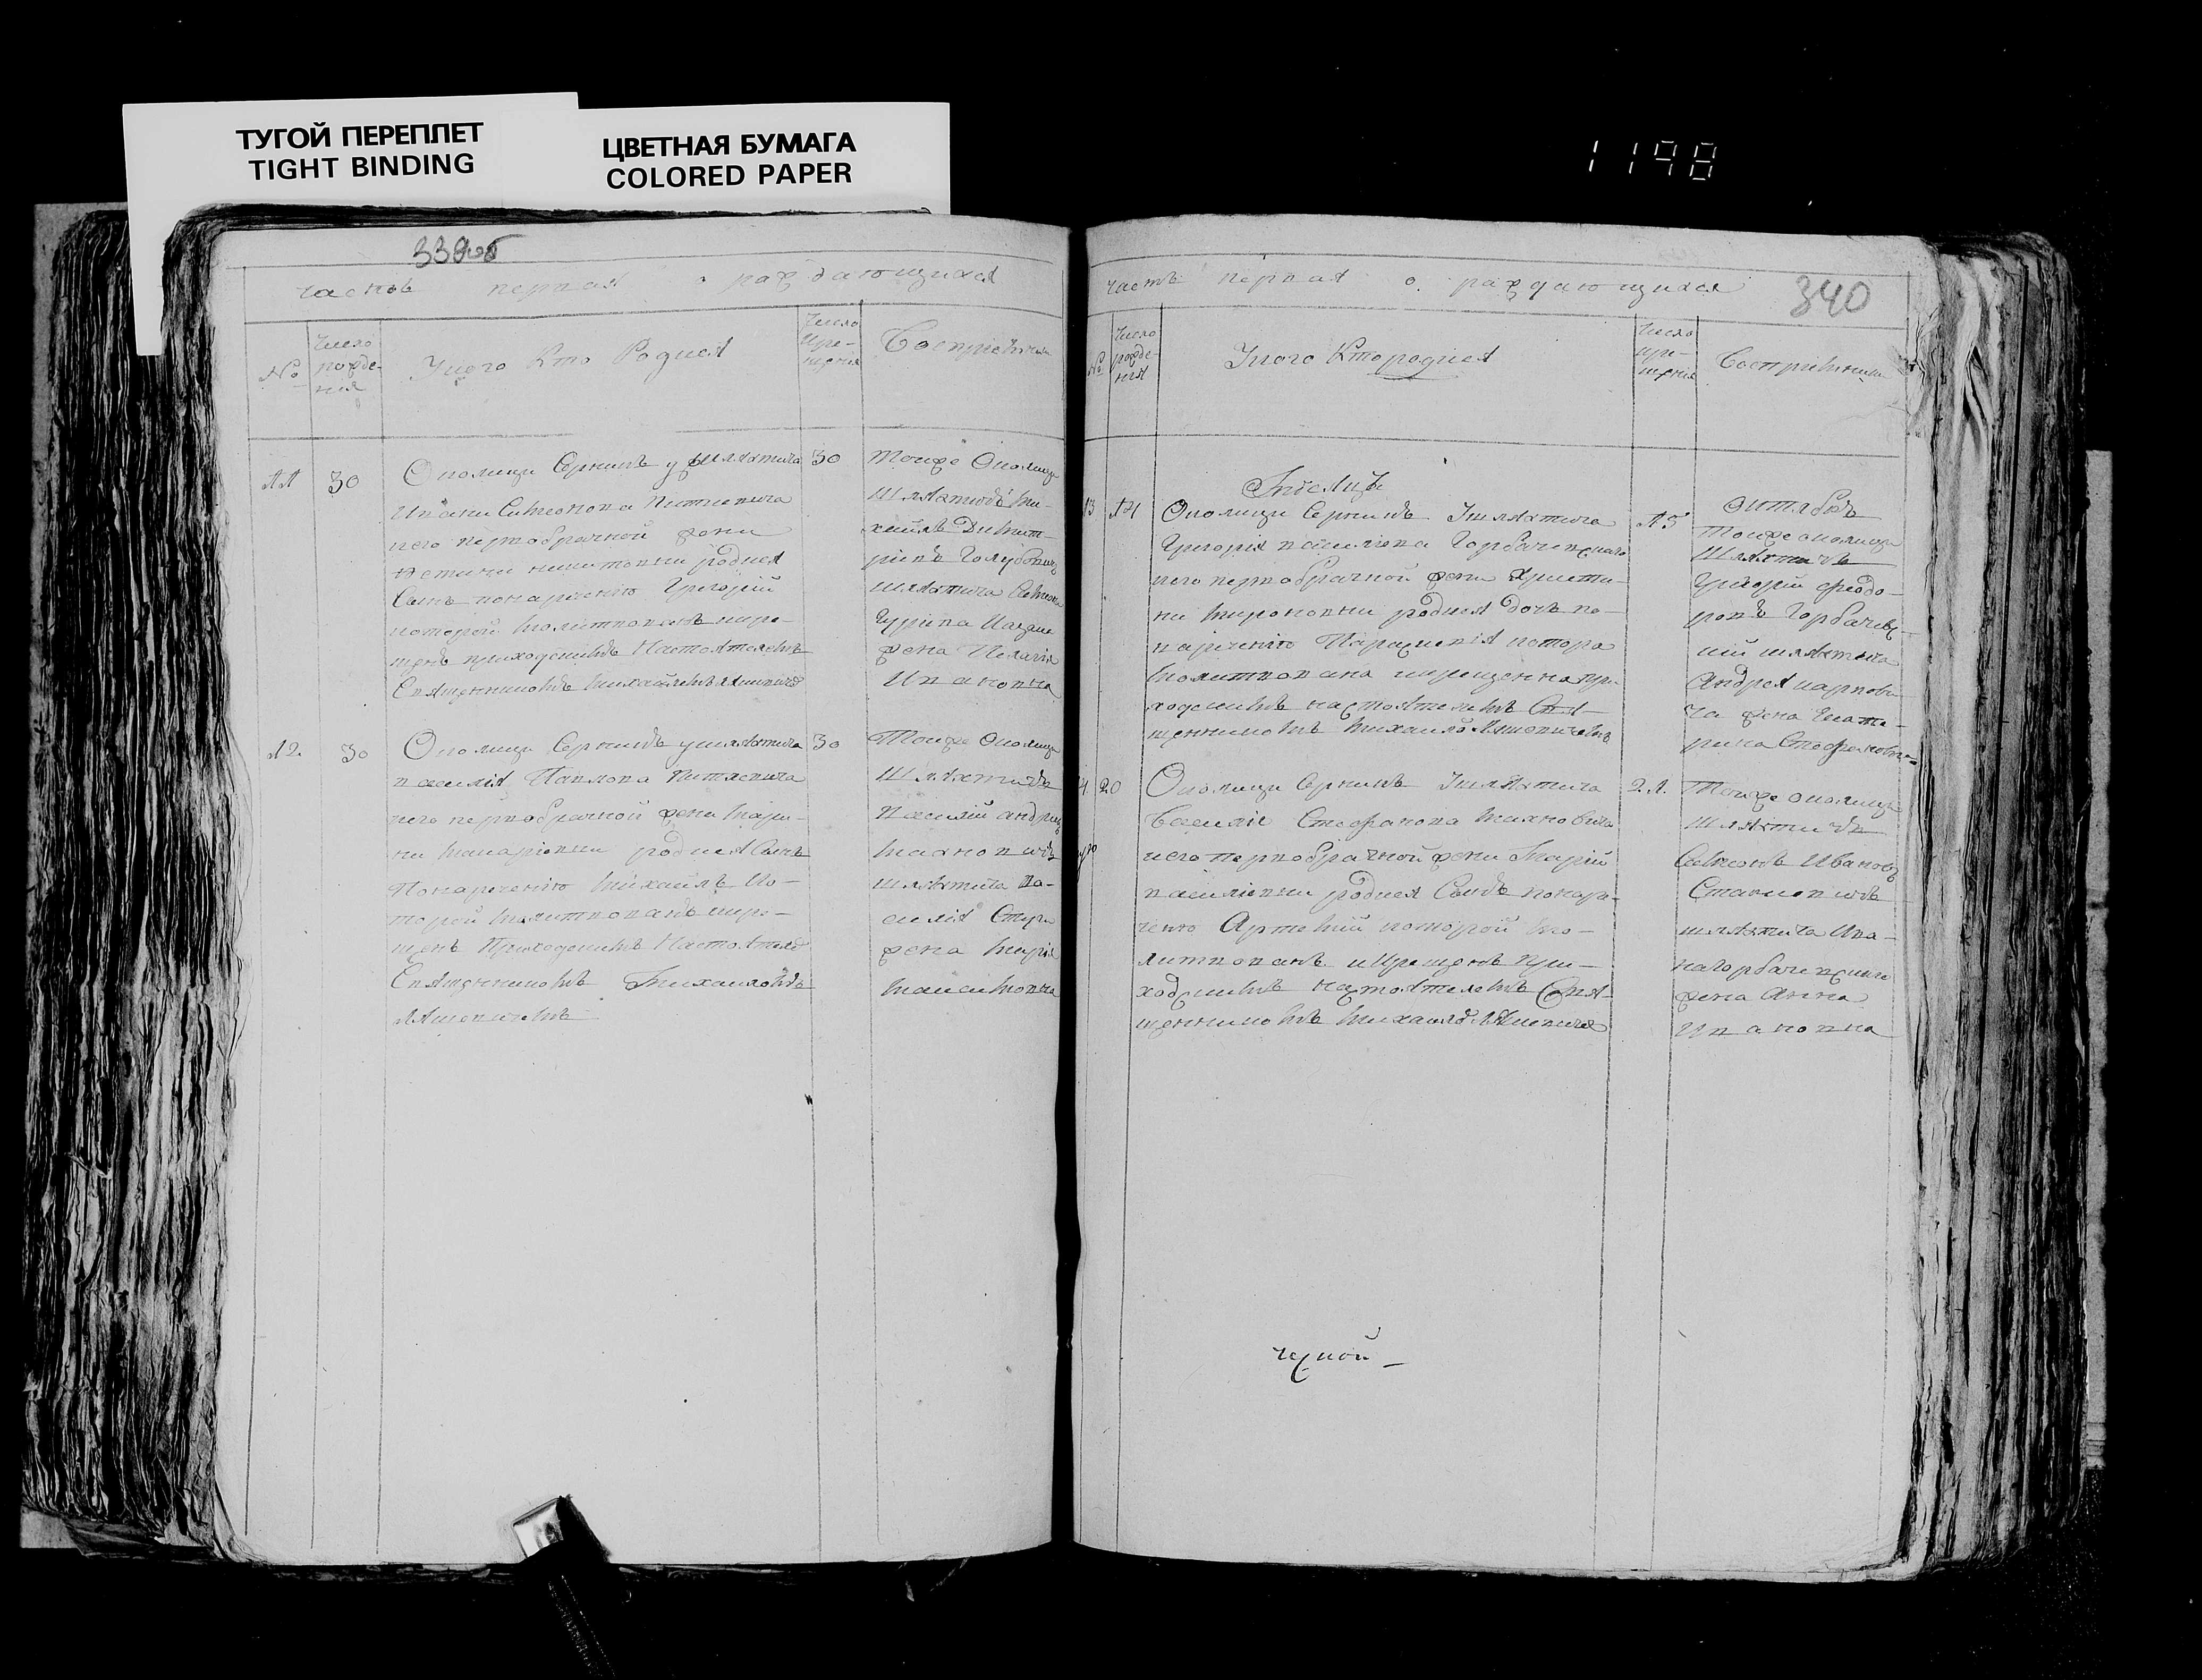 ТУГОЙ ПЕРЕПЛЕТ
TIGHT BINDING
ЦВЕТНАЯ БУМАГА
COLORED PAPER
1198
339об
часть первая о раждающихся
№
Число рожде-
ния
Уного Кто Родился
Число
Кре-
щения
Восприемники
11 30
Околицы Серникъ у шляхтича
Ивана Симеонова Витковича
него первобрачной жены
родился
Сынъ понаречению Григорий
которой молитвованъ и кре-
щенъ приходскимъ Настоятелемъ
Священникомъ Михайломъ
30
Тоиже Околицы
шляхтичъ Ми-
хайлъ Димит-
риевъ Голубович
шляхтича
жена Пелагия
Ивановна
12. 30
Околицы Серникъ у шляхтича
василия Павлова Витковича
него первобрачной жены Мари-
ны Макариевны родился Сынъ
Понаречению Михайлъ Ко-
торой молитвованъ и кре-
щенъ Приходскимъ Настоятелемъ
Священникомъ Михайломъ
30
Тоиже Околицы
Шляхтичь
Василий андреев
Махновичъ
шляхтича Ва-
силия
жена Мария
340
часть первая о раждающихся
№
Число
рожде-
ния
Уного Кто родился
Число
кре-
щения
Восприемники
13 14
Околицы Серникъ Ушляхтича
Григория василиева Горбачевскаго
него первобрачной жены Христи-
ны Мироновны родился дочь по-
наречению Параскевия котора
молитвована и крещенна при-
ходскимъ настоятелемъ Свя-
щенникомъ Михайломъ
15
Октябръ
Тоиже околицы
Шляхтичъ
Григорий Феодо-
ровъ Горбачевс-
кий шляхтича
Андрея карпови-
ча жена Екате-
рина Стефановна
20
Околицы Серникъ Ушляхтича
Василие Стефанова Махновича
него первобрачной жены Марии
василиевны родился Сынъ понаре-
чению Артемий которой мо-
литвованъ и Крещенъ при-
ходскимъ настоятелемъ Свя-
щенникомъ Михайломъ
21.
Тоиже околицы
Шляхтичъ
Симеонъ Ивановъ
шляхтича Ива-
на горбачевскаго
жена Анна
Ивановна